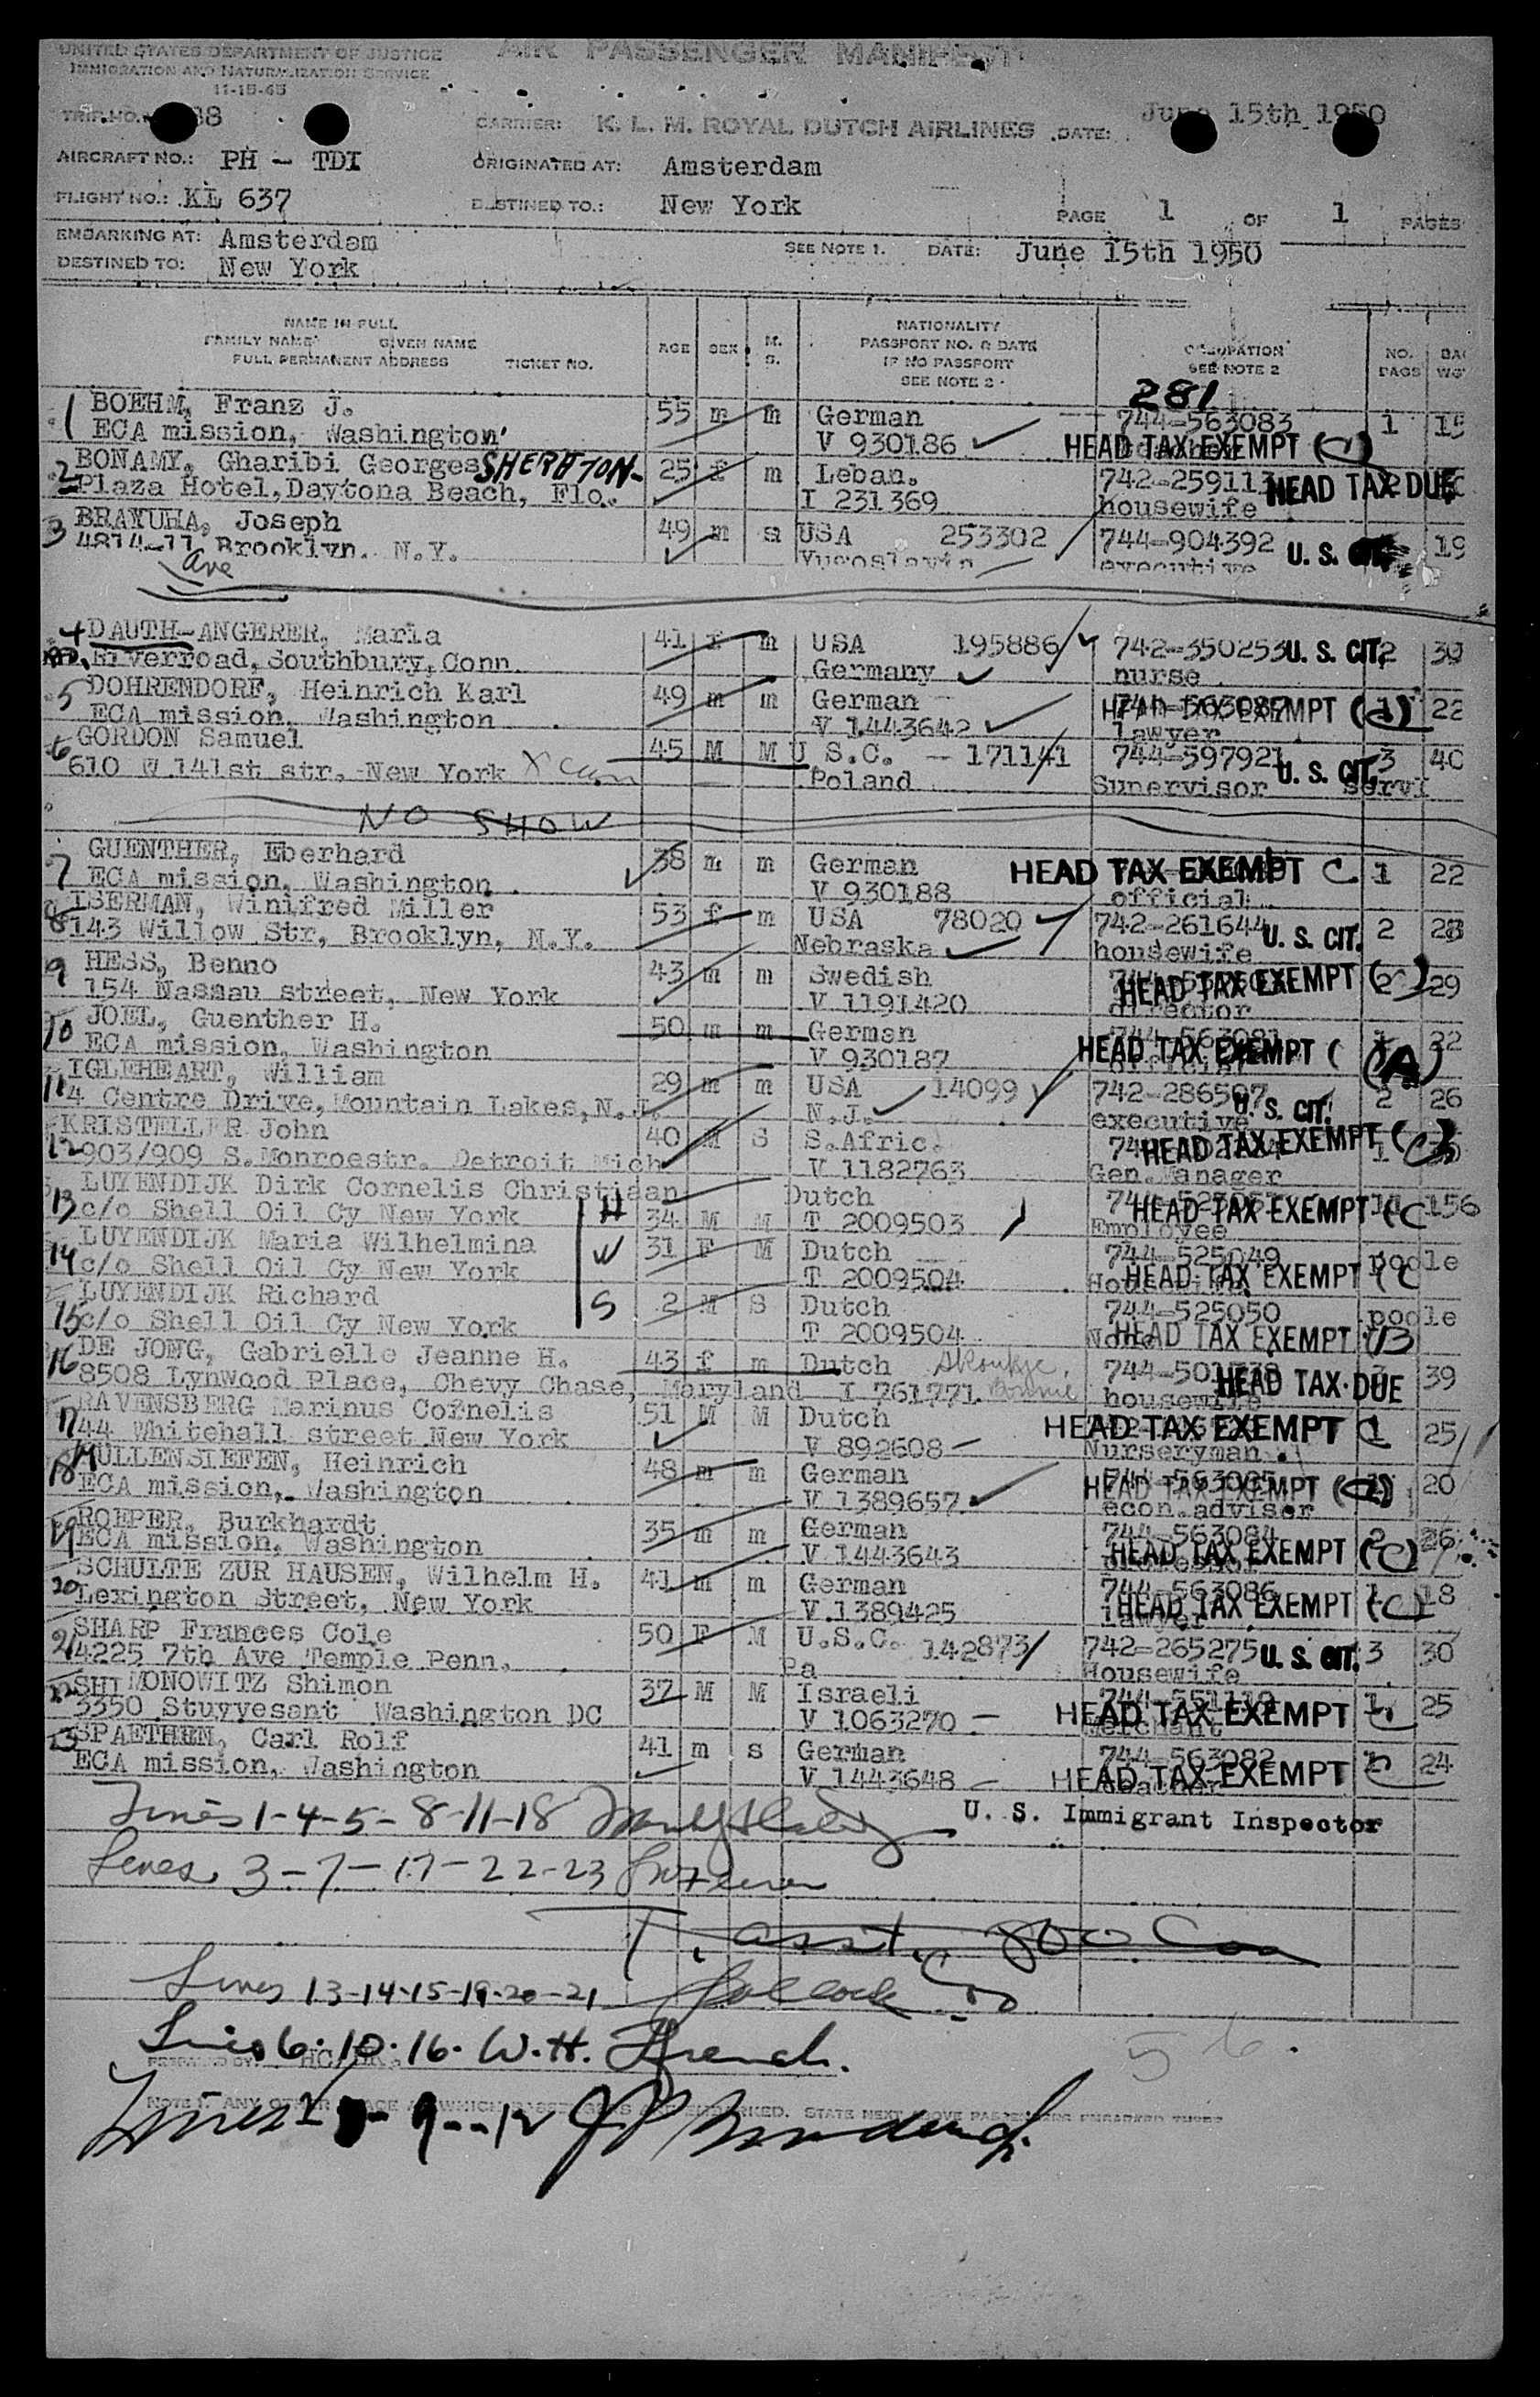 UNITED STATES DEPARTMENT OF JUSTICE
IMMIGRATION AND NATURALIZATION SERVICE
11-15-45
AIR PASSENGER MANIFEST
TRIP NO. 38
CARRIER: K. L. M. ROYAL DUTCH AIRLINES DATE: June 15th 1950
AIRCRAFT NO.: PH - TDI
ORIGINATED AT: Amsterdam
FLIGHT NO.: KL 637
DESTINED TO.: New York
PAGE 1 OF 1 PAGES
EMBARKING AT: Amsterdam
SEE NOTE 1. DATE: June 15th 1950
DESTINED TO: New York
NAME IN FULL
FAMILY NAME GIVEN NAME
FULL PERMANENT ADDRESS TICKET NO.
AGE SEX M. S.
NATIONALITY
PASSPORT NO. & DATE
IF NO PASSPORT
SEE NOTE 2
OCCUPATION
SEE NOTE 2
NO. BAGS
281
1 BOEHM, Franz J. 55 m m German 744-563083 1 15
ECA mission, Washington V 930186 HEAD TAX EXEMPT (C)
2 BONAMY, Gharibi Georges SHERATON- 25 f m Leban. 742-259113 2 HEAD TAX DUE
Plaza Hotel, Daytona Beach, Flo. I 231369 housewife
3 BRAYUHA, Joseph 49 m s USA 253302 744-904392 U. S. CIT. 19
4814-11 Brooklyn. N.Y. Yugoslavia executive
Ave
4 DAUTH-ANGERER, Maria 41 f m USA 195886 742-350253 U. S. CIT. 2 30
Riverroad, Southbury, Conn. Germany nurse
5 DOHRENDORF, Heinrich Karl 49 m m German 744-563087 HEAD TAX EXEMPT (C) 1 22
ECA mission, Washington V 1443642 lawyer
6 GORDON Samuel 45 M M U.S.C. - 171141 744-597921 U. S. CIT. 3 40
610 W 141st str. New York Poland Supervisor servi
NO SHOW
7 GUENTHER, Eberhard 38 m m German HEAD TAX EXEMPT C 1 22
ECA mission, Washington V 930188 official
8 ISERMAN, Winifred Miller 53 f m USA 78020 742-261644 U. S. CIT. 2 28
143 Willow Str, Brooklyn, N.Y. Nebraska housewife
9 HESS, Benno 43 m m Swedish HEAD TAX EXEMPT (C) 2 29
154 Nassau street, New York V 1191420 director
10 JOEL, Guenther H. 50 m m German 744-563081 1 22
ECA mission, Washington V 930187 HEAD TAX EXEMPT (A) official
11 IGLEHEART, William 29 m m USA 14099 742-286507 2 26
4 Centre Drive, Mountain Lakes, N.J. N.J. executive U. S. CIT.
12 KRISTELLER John 40 M S S.Afric. HEAD TAX EXEMPT (C) 1
903/909 S.Monroestr. Detroit Mich V 1182763 Gen. Manager
13 LUYENDIJK Dirk Cornelis Christiaan Dutch
c/o Shell Oil Cy New York H 34 M M T 2009503 HEAD TAX EXEMPT (C 11 156
Employee
14 LUYENDIJK Maria Wilhelmina W 31 F M Dutch 744-525049 poole
c/o Shell Oil Cy New York T 2009504 HEAD TAX EXEMPT (C
15 LUYENDIJK Richard S 2 M S Dutch 744-525050 poole
c/o Shell Oil Cy New York T 2009504 None HEAD TAX EXEMPT (B
16 DE JONG, Gabrielle Jeanne H. 43 f m Dutch 3 39
8508 Lynwood Place, Chevy Chase, Maryland I 761771 housewife HEAD TAX DUE
17 RAVENSBERG Marinus Cornelis 51 M M Dutch HEAD TAX EXEMPT C 1 25
44 Whitehall street New York V 892608 Nurseryman
18 MULLENSIEFEN, Heinrich 48 m m German 744-563085 HEAD TAX EXEMPT (C) 20
ECA mission, Washington V 1389657 econ.adviser
19 ROEPER, Burkhardt 35 m m German 744-563084 2 26
ECA mission, Washington V 1443643 HEAD TAX EXEMPT (C)
20 SCHULTE ZUR HAUSEN, Wilhelm H. 41 m m German 744-563086 1 18
Lexington Street, New York V.1389425 lawyer HEAD TAX EXEMPT (C)
21 SHARP Frances Cole 50 F M U.S.C. 142873 742-265275 U. S. CIT. 3 30
4225 7th Ave Temple Penn. Pa Housewife
22 SHIMONOWITZ Shimon 37 M M Israeli 1 25
3350 Stuyvesant Washington DC V 1063270 - HEAD TAX EXEMPT C Merchant
23 SPAETHEN, Carl Rolf 41 m s German 744-563082 24
ECA mission, Washington V 1443648 - HEAD TAX EXEMPT C
Lines 1-4-5-8-11-18 U. S. Immigrant Inspector
Lines 3-7-17-22-23
Lines 13-14-15-19-20-21 Pollock
Lines 6-10-16. W.H. French.
56.
PREPARED BY:
NOTE 1. ANY OTHER PLACE AT WHICH PASSENGERS ARE EMBARKED. STATE NEXT ABOVE PASSENGERS EMBARKED THERE
Lines 2 - 9 - 12